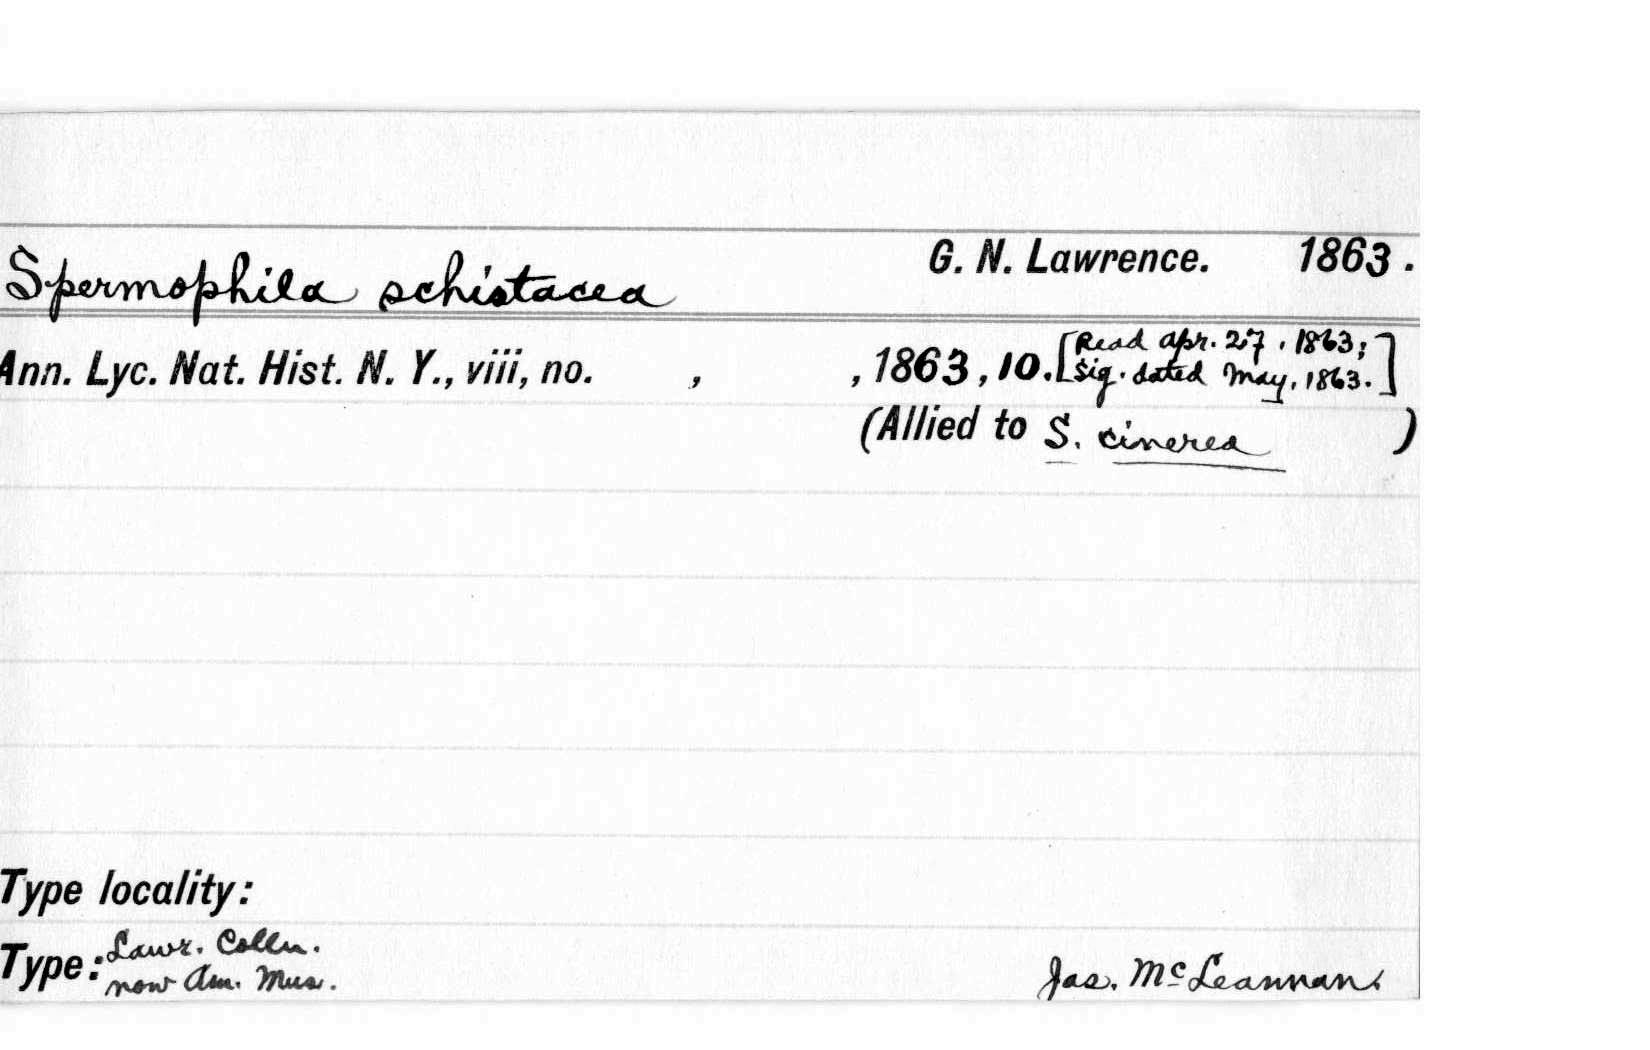 G. N. Lawrence. 1863.
Spermophila schistacea
Ann. Lyc. Nat. Hist. N. Y., viii, no. , , 1863, 10. [Read Apr. 27, 1863;
Sig. dated May, 1863.]
(Allied to S. cinerea )
Type locality:
Type: Lawr. Colln.
now Am. Mus.
Jas. McLeannan.